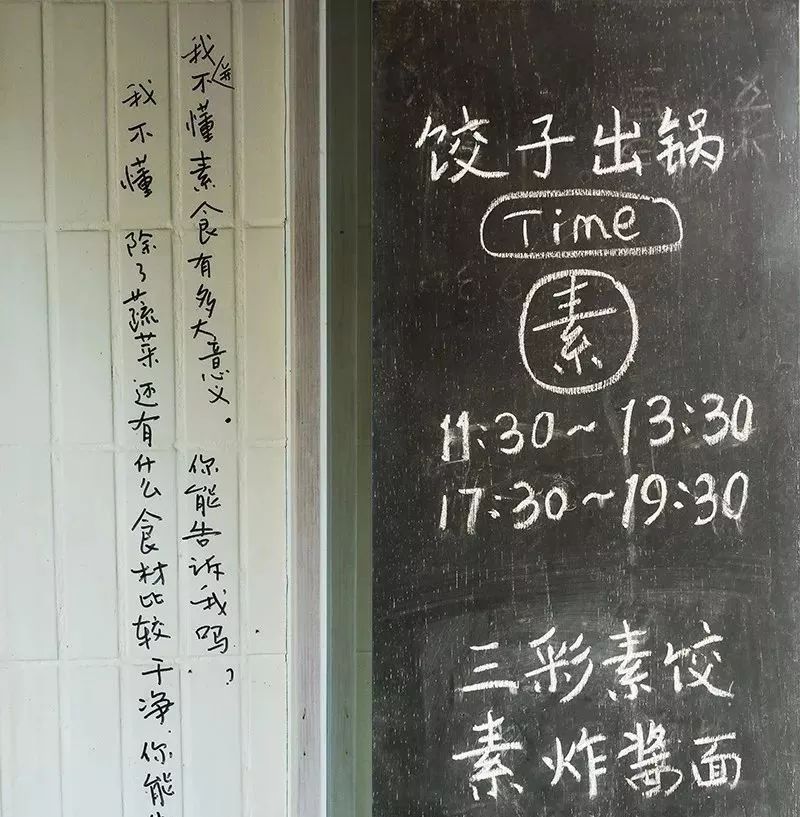 我并不懂素食有多大意义。你能告诉我吗?
我不懂 除了蔬菜还有什么食材比较干净.你能
饺子出锅
Time
素
11:30~13:30
17:30~19:30
三彩素饺
素炸酱面